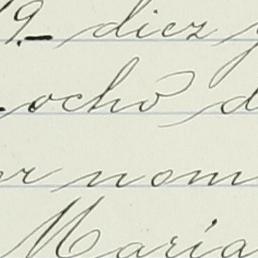 19.- diez y
ocho d
r nom
Maria